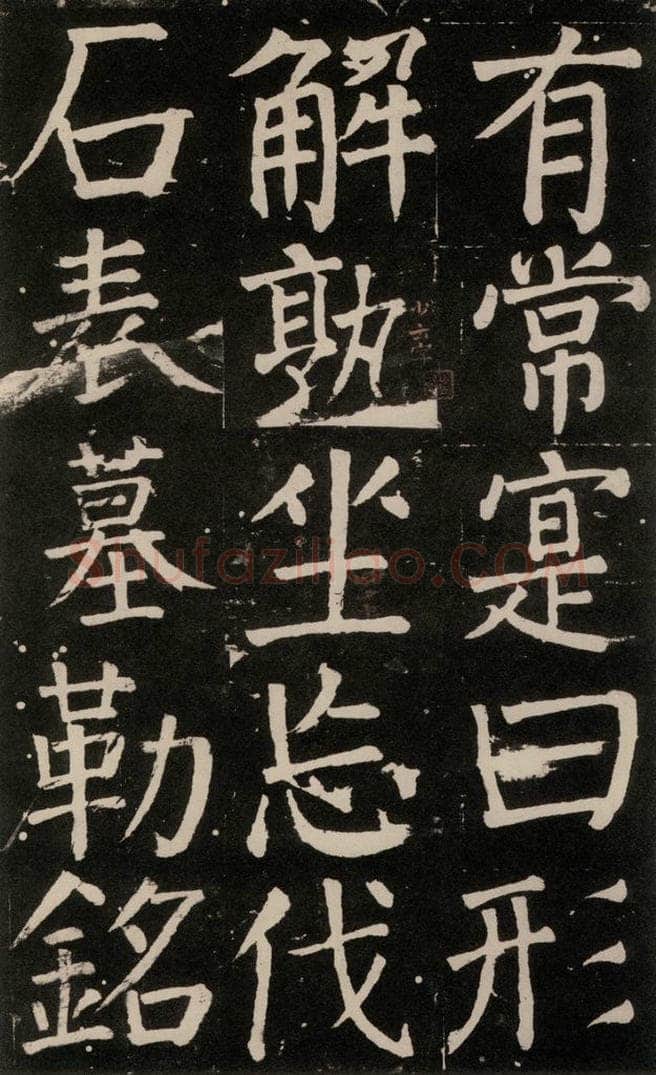 有常寔曰形
解孰坐忘伐
石表墓勒銘
Shufaziliao.COM